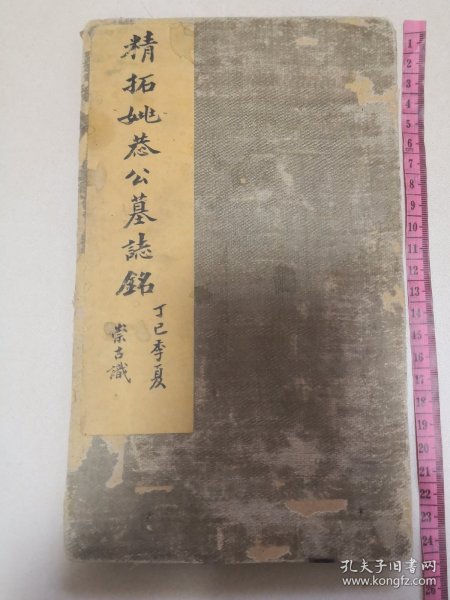 精拓姚恭公墓誌銘
丁巳季夏
崇古識
1
2
3
4
5
6
7
8
9
10
11
12
13
14
15
16
17
18
19
20
21
22
23
24
孔夫子旧书网
www.kongfz.com